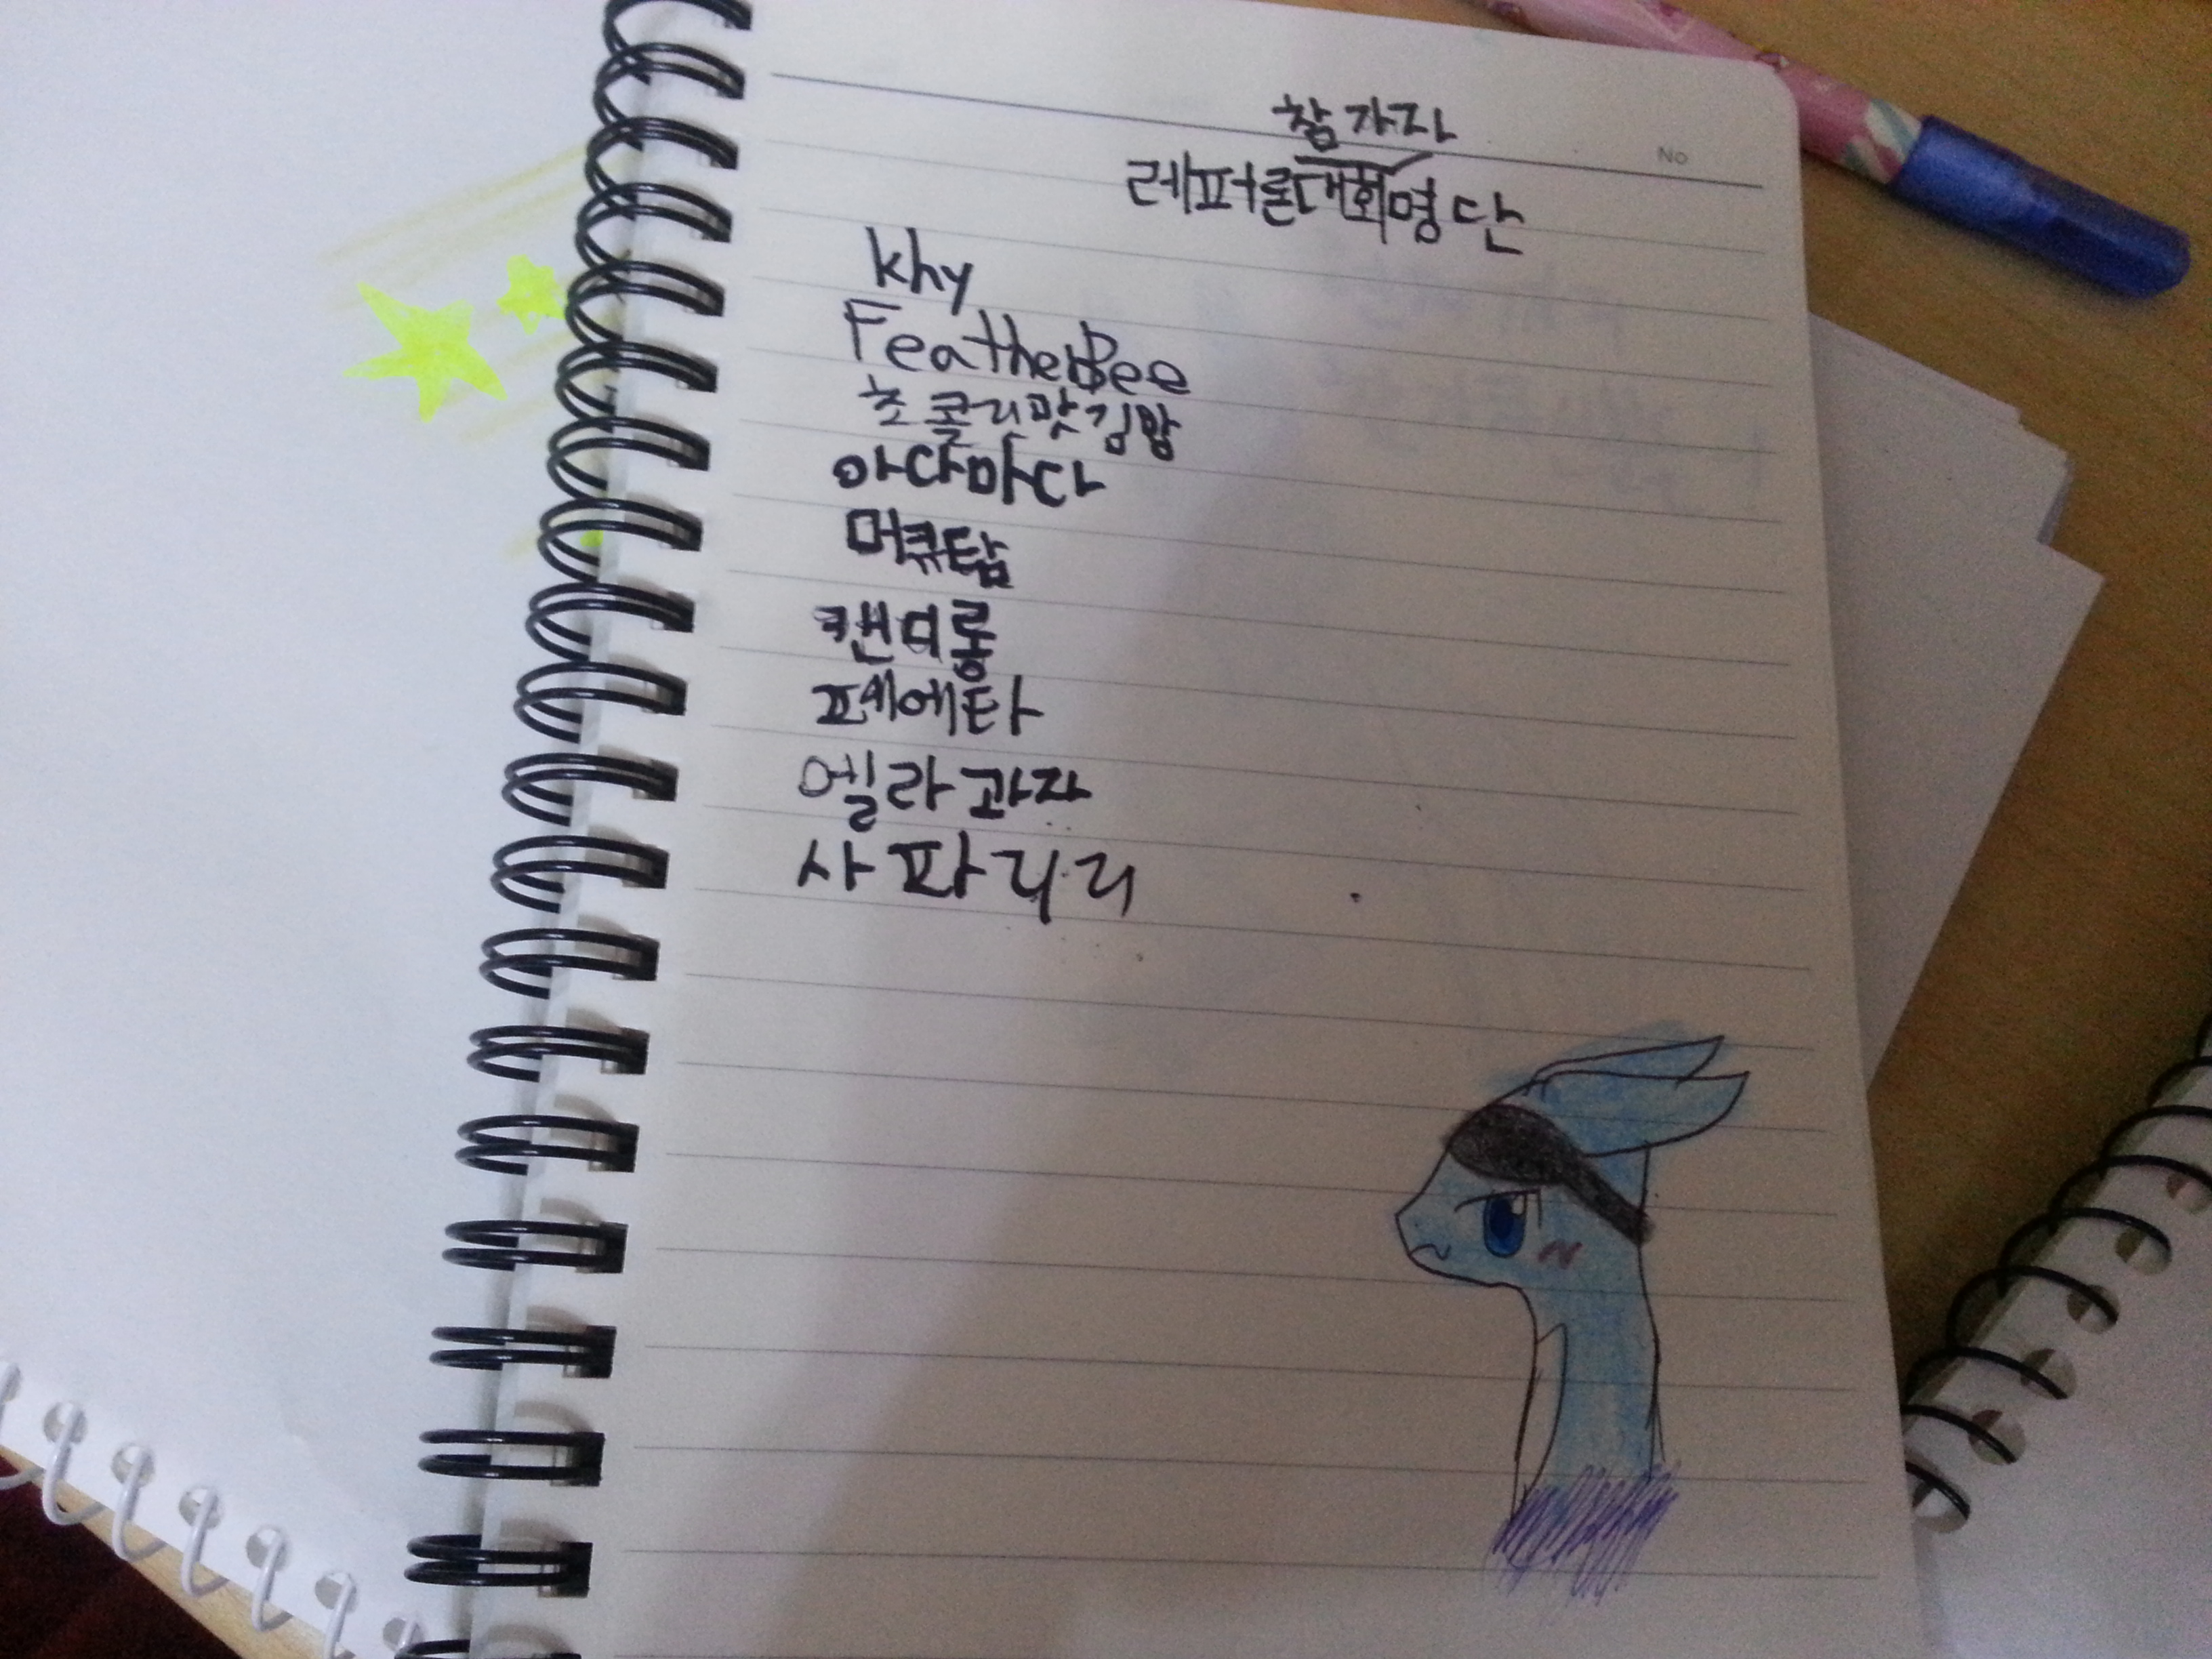 참가자
레퍼론대회명단
No
khy
FeatherBee
초콜리맛김밥
아다마다
머큐탑
캔디롱
페에타
엘라과자
사파리리